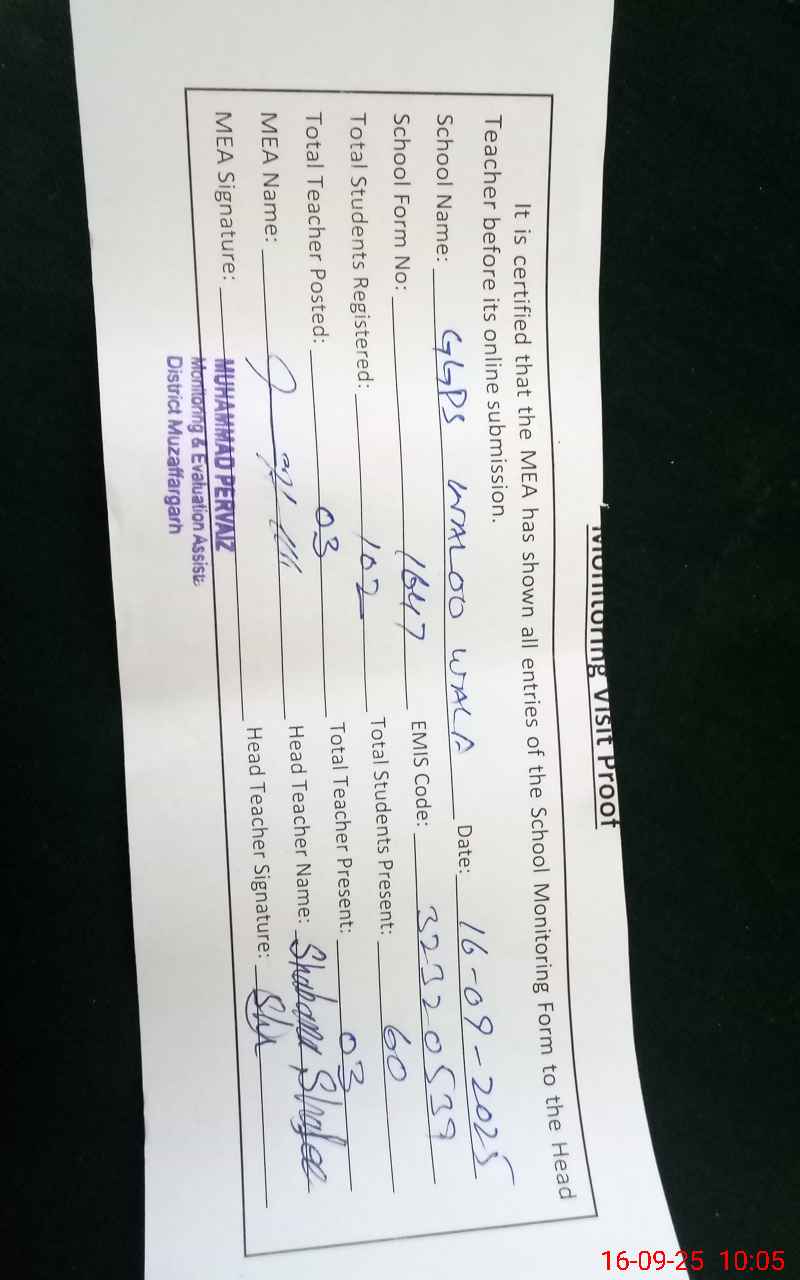 Monitoring Visit Proof
It is certified that the MEA has shown all entries of the School Monitoring Form to the Head
Teacher before its online submission.
School Name: GGPS WALOO WALA Date: 16-09-2025
School Form No: 1647 EMIS Code: 32320539
Total Students Registered: 102 Total Students Present: 60
Total Teacher Posted: 03 Total Teacher Present: 03
MEA Name: Head Teacher Name: Shabana Shafee
MEA Signature: Head Teacher Signature:
MUHAMMAD PERVAIZ
Monitoring & Evaluation Assist
District Muzaffargarh
16-09-25 10:05